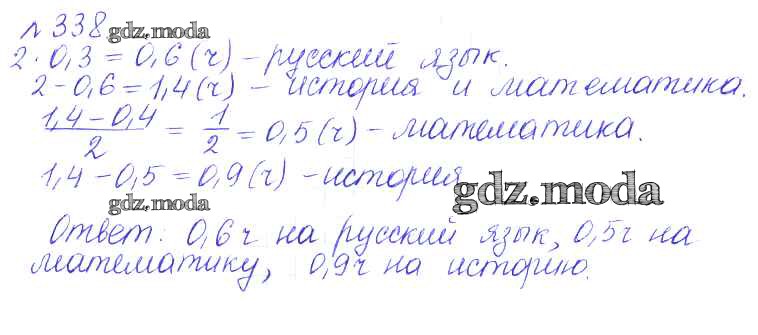 № 338
gdz.moda
2 · 0,3 = 0,6 (ч) – русский язык.
2 – 0,6 = 1,4 (ч) – история и математика.
(1,4 – 0,4)/2 = 1/2 = 0,5 (ч) – математика.
1,4 – 0,5 = 0,9 (ч) – история
gdz.moda
gdz.moda
Ответ: 0,6 ч на русский язык, 0,5 ч на
математику, 0,9 ч на историю.